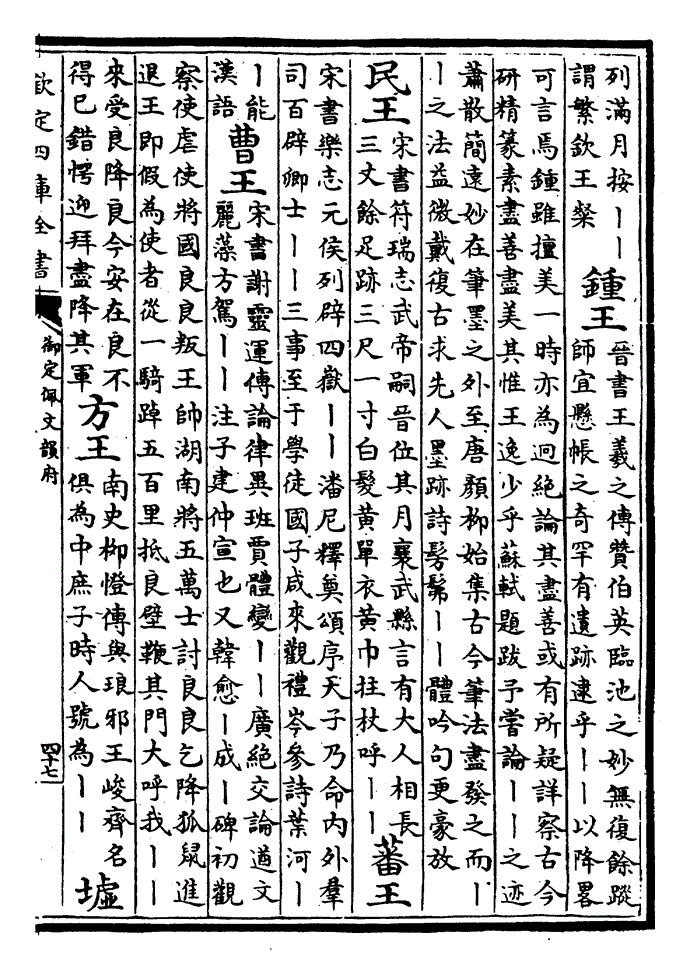 列滿月按丨丨
謂繁欽王粲
鍾王
晉書王羲之傳贊伯英臨池之妙無復餘蹤
師宜懸帳之奇罕有遺跡逮乎丨丨以降畧
可言焉鍾雖擅美一時亦為迥絕論其盡善或有所疑詳察古今
研精篆素盡善盡美其惟王逸少乎蘇軾題跋予嘗論丨丨之迹
蕭散簡遠妙在筆墨之外至唐顏柳始集古今筆法盡發之而丨
丨之法益微戴復古求先人墨跡詩髣髴丨丨體吟句更豪放
民王
宋書符瑞志武帝嗣晉位其月襄武縣言有大人相長
三丈餘足跡三尺一寸白髮黃單衣黃巾拄杖呼丨丨
蕃王
宋書樂志元侯列辟四嶽丨丨潘尼釋奠頌序天子乃命內外羣
司百辟卿士丨丨三事至于學徒國子咸來觀禮岑參詩葉河丨
丨能
漢語
曹王
宋書謝靈運傳論律異班賈體變丨丨廣絕交論遒文
麗藻方駕丨丨注子建仲宣也又韓愈丨成丨碑初觀
察使虐使將國良良叛王帥湖南將五萬士討良良乞降狐鼠進
退王即假為使者從一騎踔五百里抵良壁鞭其門大呼我丨丨
來受良降良今安在良不
得已錯愕迎拜盡降其軍
方王
南史柳憕傳與琅邪王峻齊名
俱為中庶子時人號為丨丨
墟
欽定四庫全書
御定佩文韻府
四十七